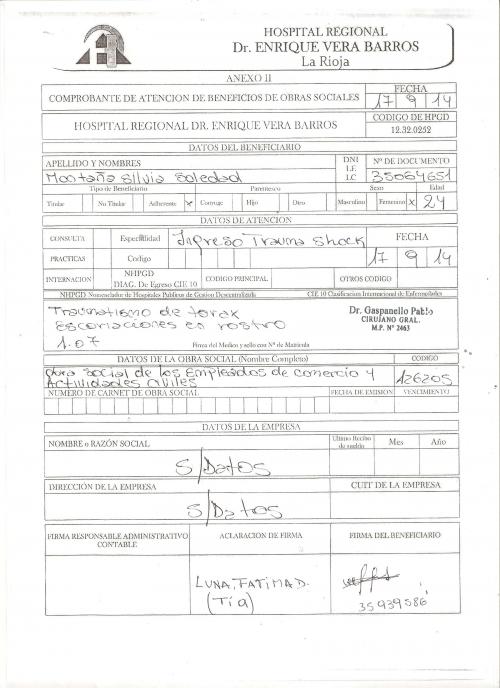 HOSPITAL REGIONAL
Dr. ENRIQUE VERA BARROS
La Rioja
ANEXO II
COMPROBANTE DE ATENCION DE BENEFICIOS DE OBRAS SOCIALES
FECHA
17 9 14
HOSPITAL REGIONAL DR. ENRIQUE VERA BARROS
CODIGO DE HPGD
12.32.0252
DATOS DEL BENEFICIARIO
APELLIDO Y NOMBRES
DNI
L.E
L.C
Nº DE DOCUMENTO
Montaña Silvia Soledad
35064651
Tipo de Beneficiario Parentesco Sexo Edad
Titular No Titular Adherente x Conyuge Hijo Otro Masculino Femenino x 24
DATOS DE ATENCION
CONSULTA Especialidad Ingreso Trauma Shock FECHA
PRACTICAS Codigo 17 9 14
INTERNACION NHPGD
DIAG. De Egreso CIE 10 CODIGO PRINCIPAL OTROS CODIGO
NHPGD Nomenclador de Hospitales Publicos de Gestion Descentralizada CIE 10 Clasificacion Internacional de Enfermedades
Traumatismo de torax
Escoriaciones en rostro
1.07
Dr. Gaspanello Pablo
CIRUJANO GRAL.
M.P. Nº 2463
Firma del Medico y sello con Nº de Matricula
DATOS DE LA OBRA SOCIAL (Nombre Completo) CODIGO
Obra Social de los Empleados de comercio y
Actividades civiles
126205
NUMERO DE CARNET DE OBRA SOCIAL FECHA DE EMISION VENCIMIENTO
DATOS DE LA EMPRESA
NOMBRE o RAZÓN SOCIAL
Ultimo Recibo
de sueldo
Mes Año
S/Datos
DIRECCIÓN DE LA EMPRESA CUIT DE LA EMPRESA
S/Datos
FIRMA RESPONSABLE ADMINISTRATIVO
CONTABLE
ACLARACION DE FIRMA
FIRMA DEL BENEFICIARIO
LUNA, FATIMA D.
(Tía)
35939586